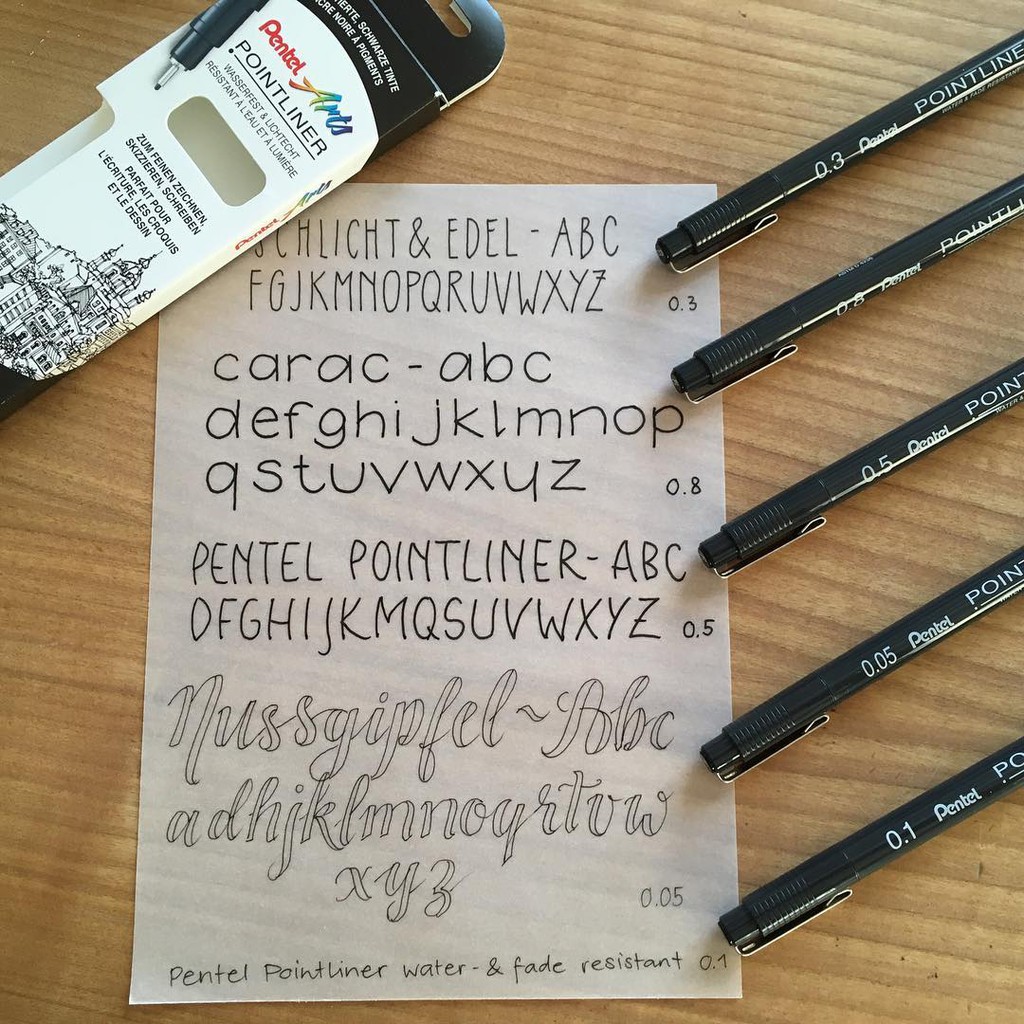 FIERTE, SCHWARZE TINTE
NCRE NOIRE À PIGMENTS
Pentel Arts
POINTLINER
WASSERFEST & LICHTECHT
RÉSISTANT À L'EAU ET À LUMIÈRE
ZUM FEINEN ZEICHNEN,
SKIZZIEREN, SCHREIBEN
PARFAIT POUR
L'ÉCRITURE, LES CROQUIS
ET LE DESSIN
Pentel Arts
SCHLICHT & EDEL - ABC
FGJKMNOPQRUVWXYZ 0.3
carac - abc
defghijklmnop
qstuvwxyz 0.8
PENTEL POINTLINER - ABC
DFGHIJKMQSUVWXYZ 0.5
Nussgipfel ~ Abc
adhjklmnoqrtvw
xyz 0.05
Pentel Pointliner water- & fade resistant 0.1
0.3 Pentel POINTLINE
WATER & FADE RESISTANT
0.8 Pentel POINTLI
0.5 Pentel POINT
0.05 Pentel POINT
0.1 Pentel PO